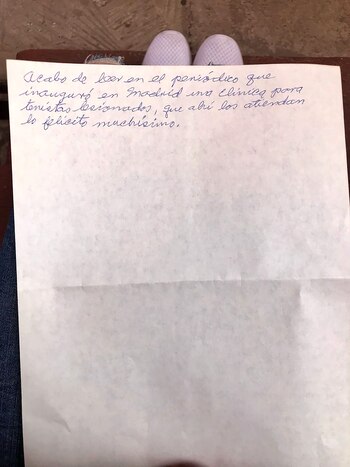 Acabo de leer en el periódico que
inauguró en Madrid una Clínica para
tenistas lesionados, que ahí los atiendan
lo felicito muchísimo.